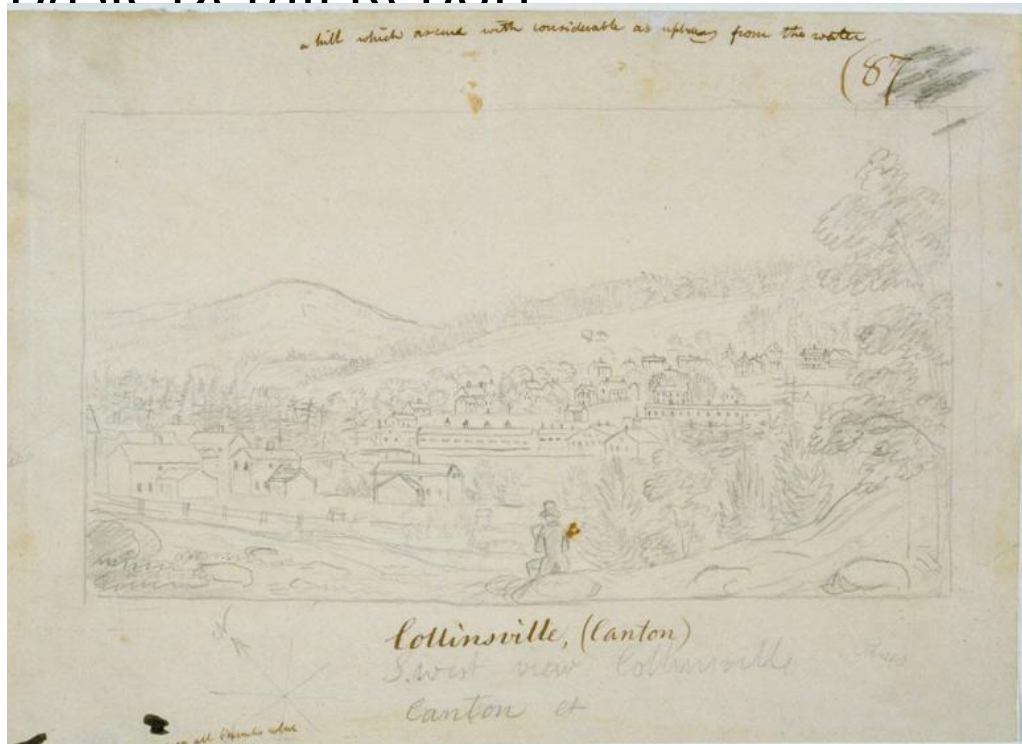 a hill which ascend with considerable as from the water
(87
N
Collinsville, (Canton)
S.west view Collinsville
Canton ct
all